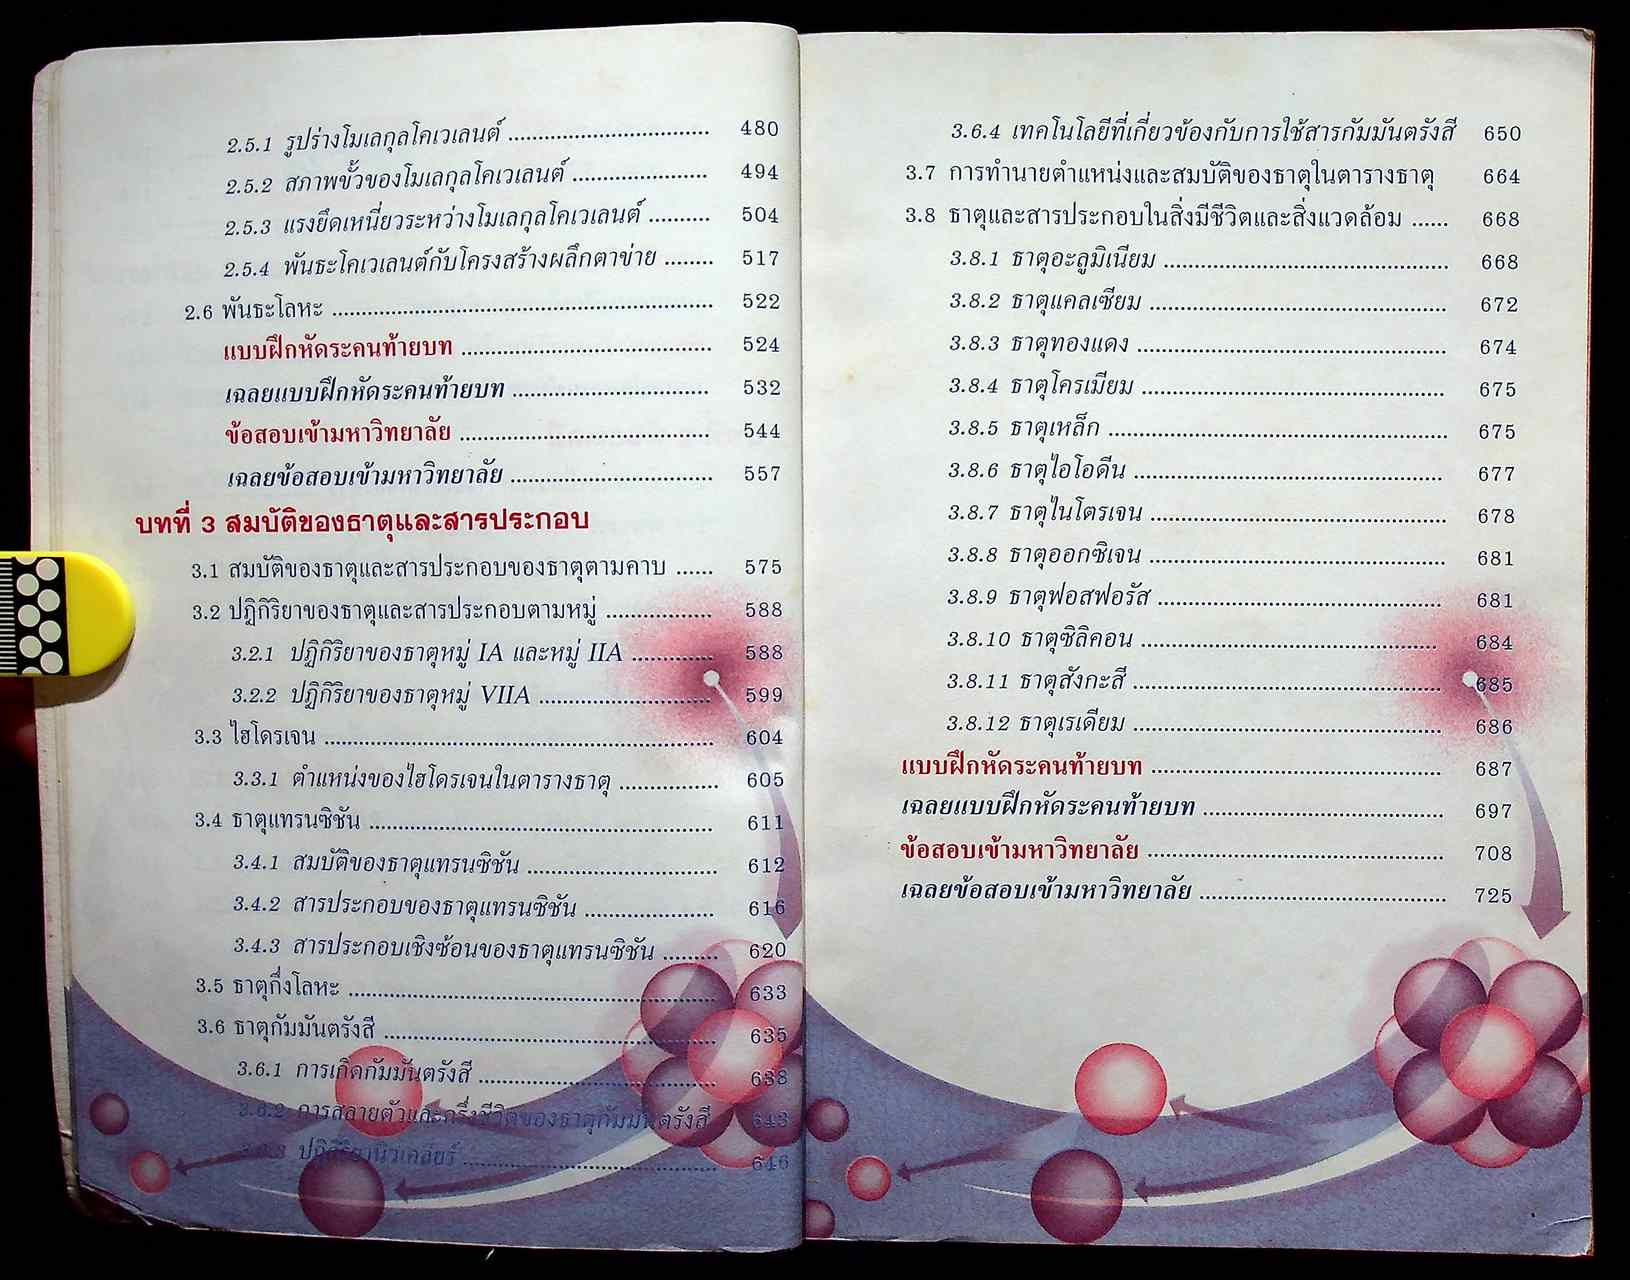 2.5.1 รูปร่างโมเลกุลโคเวเลนต์ ........................ 480
2.5.2 สภาพขั้วของโมเลกุลโคเวเลนต์ ........................ 494
2.5.3 แรงยึดเหนี่ยวระหว่างโมเลกุลโคเวเลนต์ .......... 504
2.5.4 พันธะโคเวเลนต์กับโครงสร้างผลึกตาข่าย ........ 517
2.6 พันธะโลหะ ........................ 522
แบบฝึกหัดระคนท้ายบท ........................ 524
เฉลยแบบฝึกหัดระคนท้ายบท ........................ 532
ข้อสอบเข้ามหาวิทยาลัย ........................ 544
เฉลยข้อสอบเข้ามหาวิทยาลัย ........................ 557
บทที่ 3 สมบัติของธาตุและสารประกอบ
3.1 สมบัติของธาตุและสารประกอบของธาตุตามคาบ ...... 575
3.2 ปฏิกิริยาของธาตุและสารประกอบตามหมู่ ................ 588
3.2.1 ปฏิกิริยาของธาตุหมู่ IA และหมู่ IIA ............ 588
3.2.2 ปฏิกิริยาของธาตุหมู่ VIIA ........................ 599
3.3 ไฮโดรเจน ........................ 604
3.3.1 ตำแหน่งของไฮโดรเจนในตารางธาตุ ................ 605
3.4 ธาตุแทรนซิชัน ........................ 611
3.4.1 สมบัติของธาตุแทรนซิชัน ........................ 612
3.4.2 สารประกอบของธาตุแทรนซิชัน ........................ 616
3.4.3 สารประกอบเชิงซ้อนของธาตุแทรนซิชัน ......... 620
3.5 ธาตุกึ่งโลหะ ........................ 633
3.6 ธาตุกัมมันตรังสี ........................ 635
3.6.1 การเกิดกัมมันตรังสี ........................ 638
3.6.2 การสลายตัวและครึ่งชีวิตของธาตุกัมมันตรังสี 643
3.6.3 ปฏิกิริยานิวเคลียร์ ........................ 646
3.6.4 เทคโนโลยีที่เกี่ยวข้องกับการใช้สารกัมมันตรังสี 650
3.7 การทำนายตำแหน่งและสมบัติของธาตุในตารางธาตุ 664
3.8 ธาตุและสารประกอบในสิ่งมีชีวิตและสิ่งแวดล้อม ...... 668
3.8.1 ธาตุอะลูมิเนียม ........................ 668
3.8.2 ธาตุแคลเซียม ........................ 672
3.8.3 ธาตุทองแดง ........................ 674
3.8.4 ธาตุโครเมียม ........................ 675
3.8.5 ธาตุเหล็ก ........................ 675
3.8.6 ธาตุไอโอดีน ........................ 677
3.8.7 ธาตุไนโตรเจน ........................ 678
3.8.8 ธาตุออกซิเจน ........................ 681
3.8.9 ธาตุฟอสฟอรัส ........................ 681
3.8.10 ธาตุซิลิคอน ........................ 684
3.8.11 ธาตุสังกะสี ........................ 685
3.8.12 ธาตุเรเดียม ........................ 686
แบบฝึกหัดระคนท้ายบท ........................ 687
เฉลยแบบฝึกหัดระคนท้ายบท ........................ 697
ข้อสอบเข้ามหาวิทยาลัย ........................ 708
เฉลยข้อสอบเข้ามหาวิทยาลัย ........................ 725